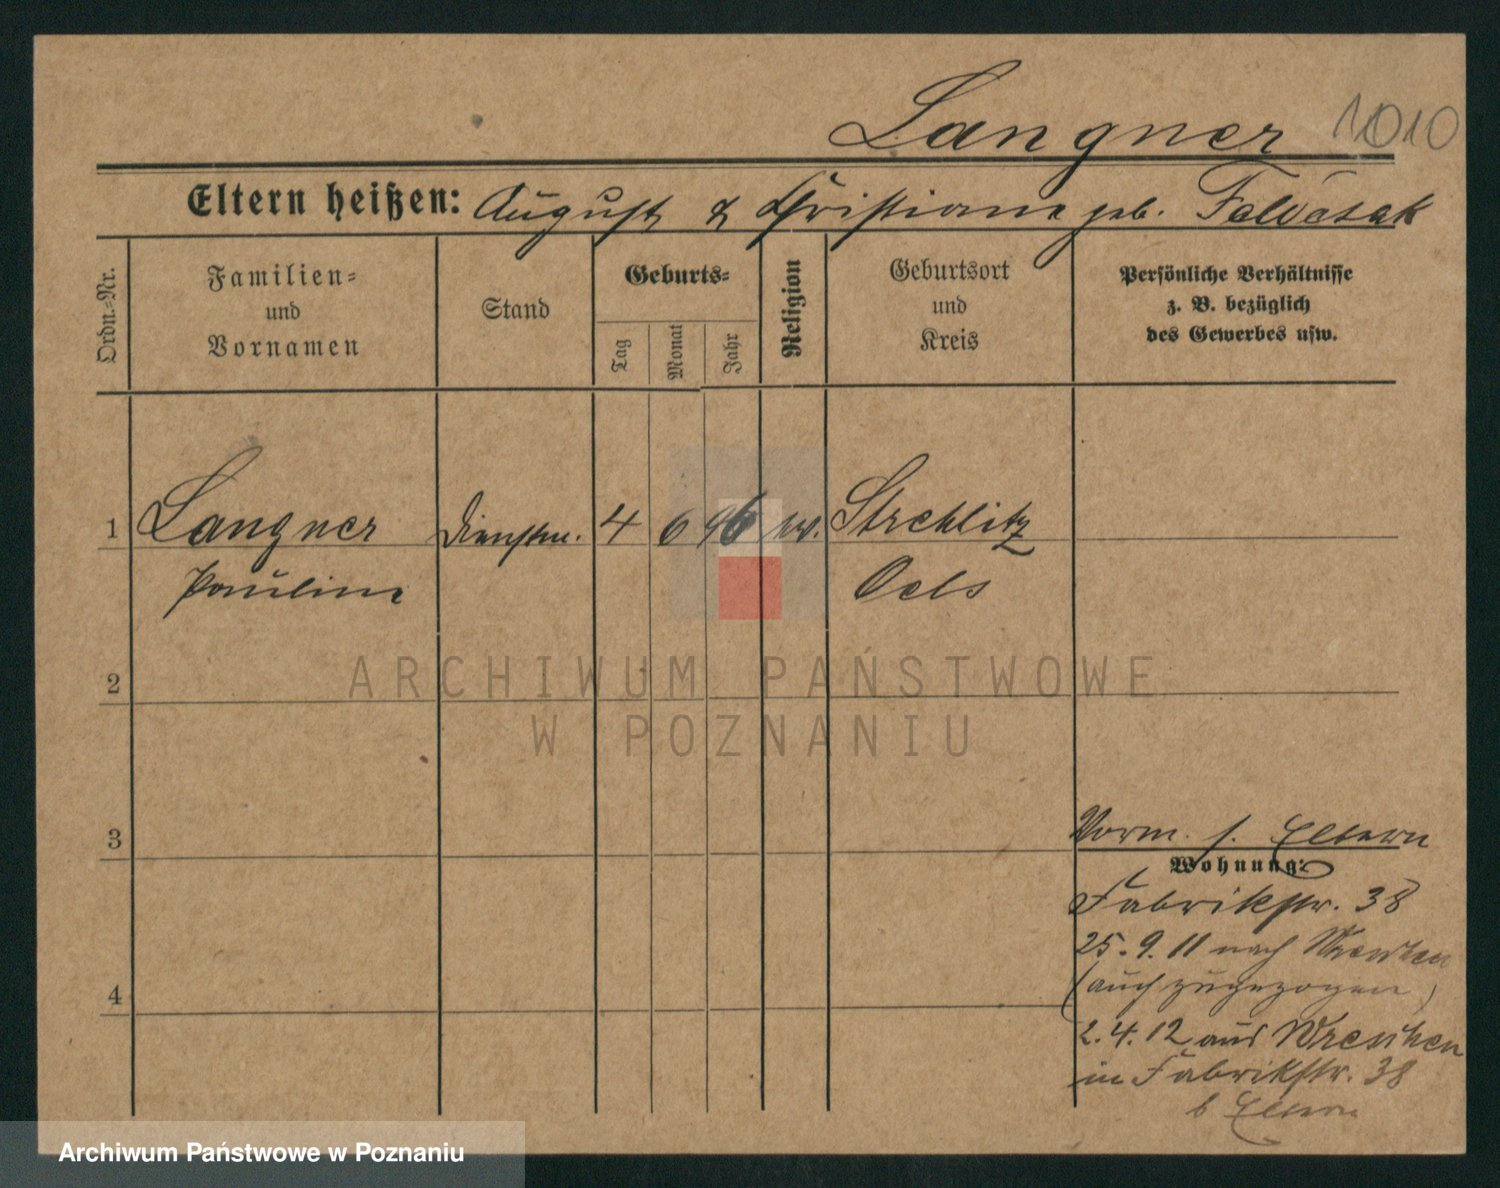 Langner 1010
Eltern heißen: August & Christiane geb.
Ordn.-Nr.
Familien-
und
Vornamen
Stand
Geburts-
Tag
Monat
Jahr
Religion
Geburtsort
und
Kreis
Persönliche Verhältnisse
z. B. bezüglich
des Gewerbes usw.
1 Langner Dienstm. 4 6 96 ev. Strehlitz
Pauline Oels
2
3
4
Vorm. s. Eltern
Wohnung:
Fabrikstr. 38
25.9.11 nach Wreschen
(auch zugezogen)
2.4.12 aus Wreschen
in Fabrikstr. 38
b Eltern
ARCHIWUM PAŃSTWOWE
W POZNANIU
Archiwum Państwowe w Poznaniu